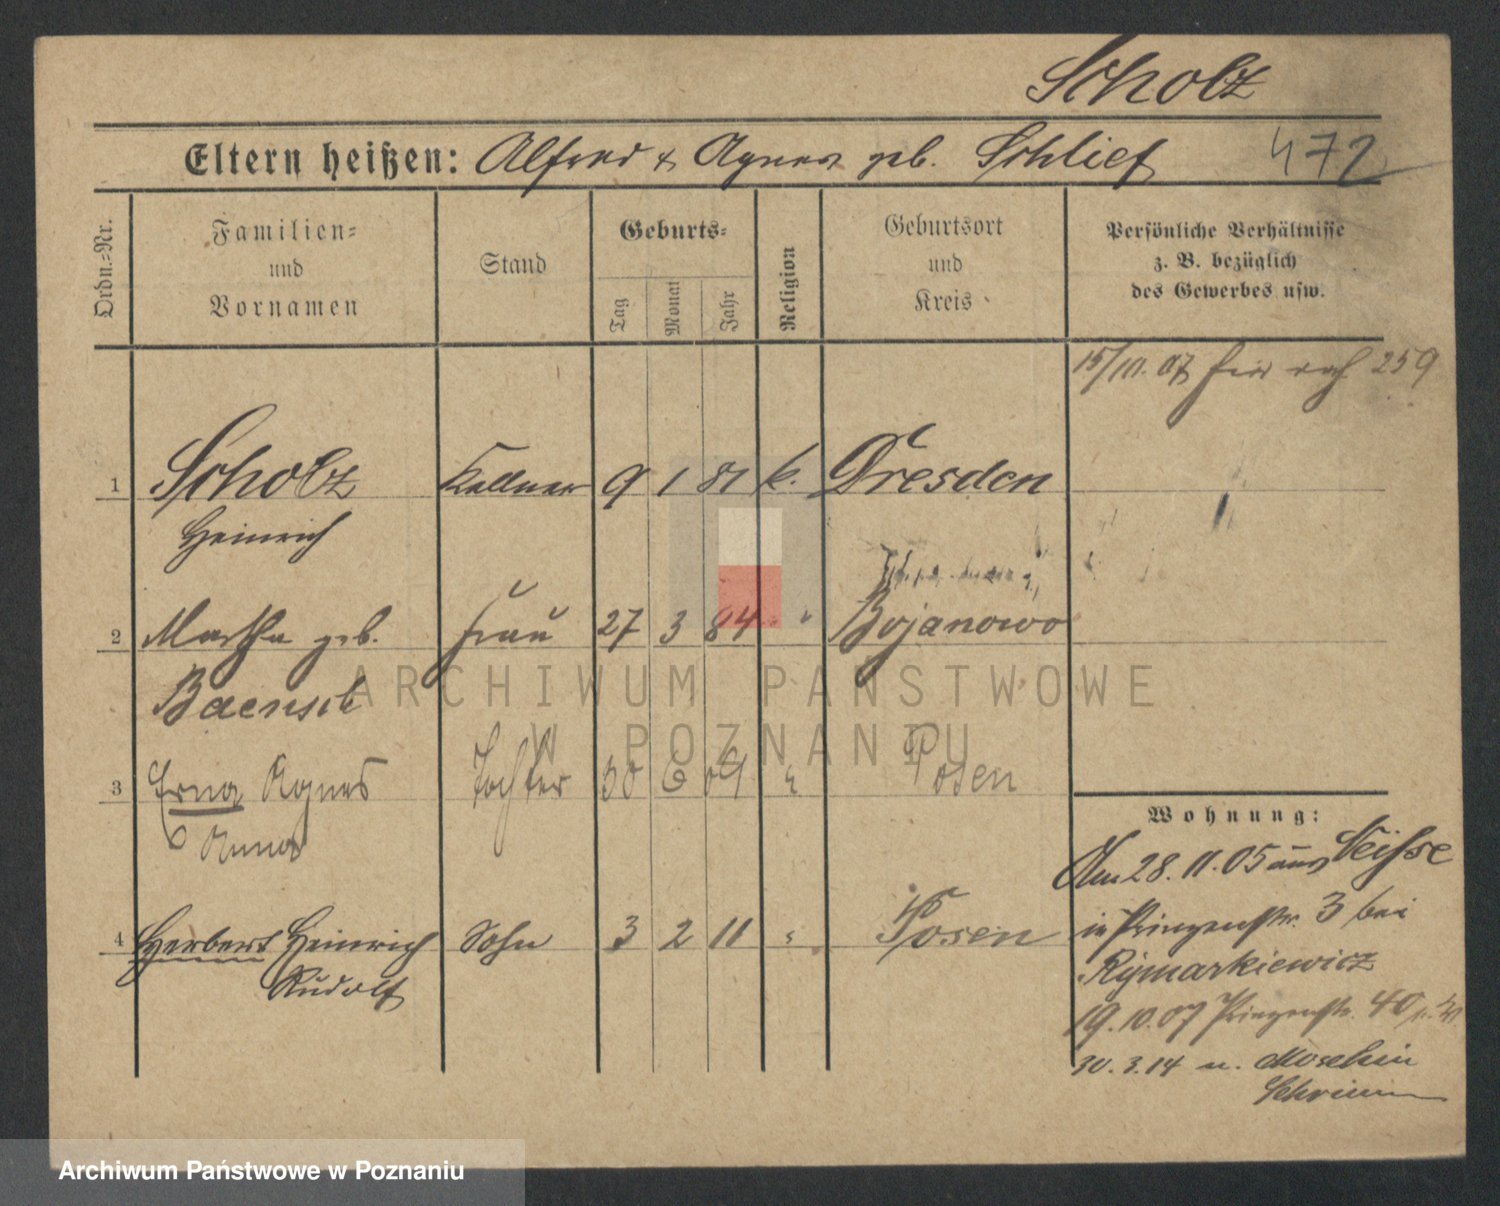 Scholz
Eltern heißen: Alfred & Agnes geb. Schlief 472
Ordn.=Nr.
Familien=
und
Vornamen
Stand
Geburts=
Tag
Monat
Jahr
Religion
Geburtsort
und
Kreis
Persönliche Verhältnisse
z. B. bezüglich
des Gewerbes usw.
15/10. 07 259
1 Scholz Kellner 9 1 81 k. Dresden
Heinrich
2 Martha geb. Frau 27 3 84 " Bojanowo
Baensch
3 Erna Agnes Tochter 30 6 09 " Posen
Anna
4 Herbert Heinrich Sohn 3 2 11 " Posen
Rudolf
Wohnung:
Am 28. 11. 05 aus Neisse
in Prinzenstr. 3 bei
Rymarkiewicz
19. 10. 07 Prinzenstr. 40
30. 3. 14 n. Moschin
Schrimm
ARCHIWUM PAŃSTWOWE
W POZNANIU
Archiwum Państwowe w Poznaniu